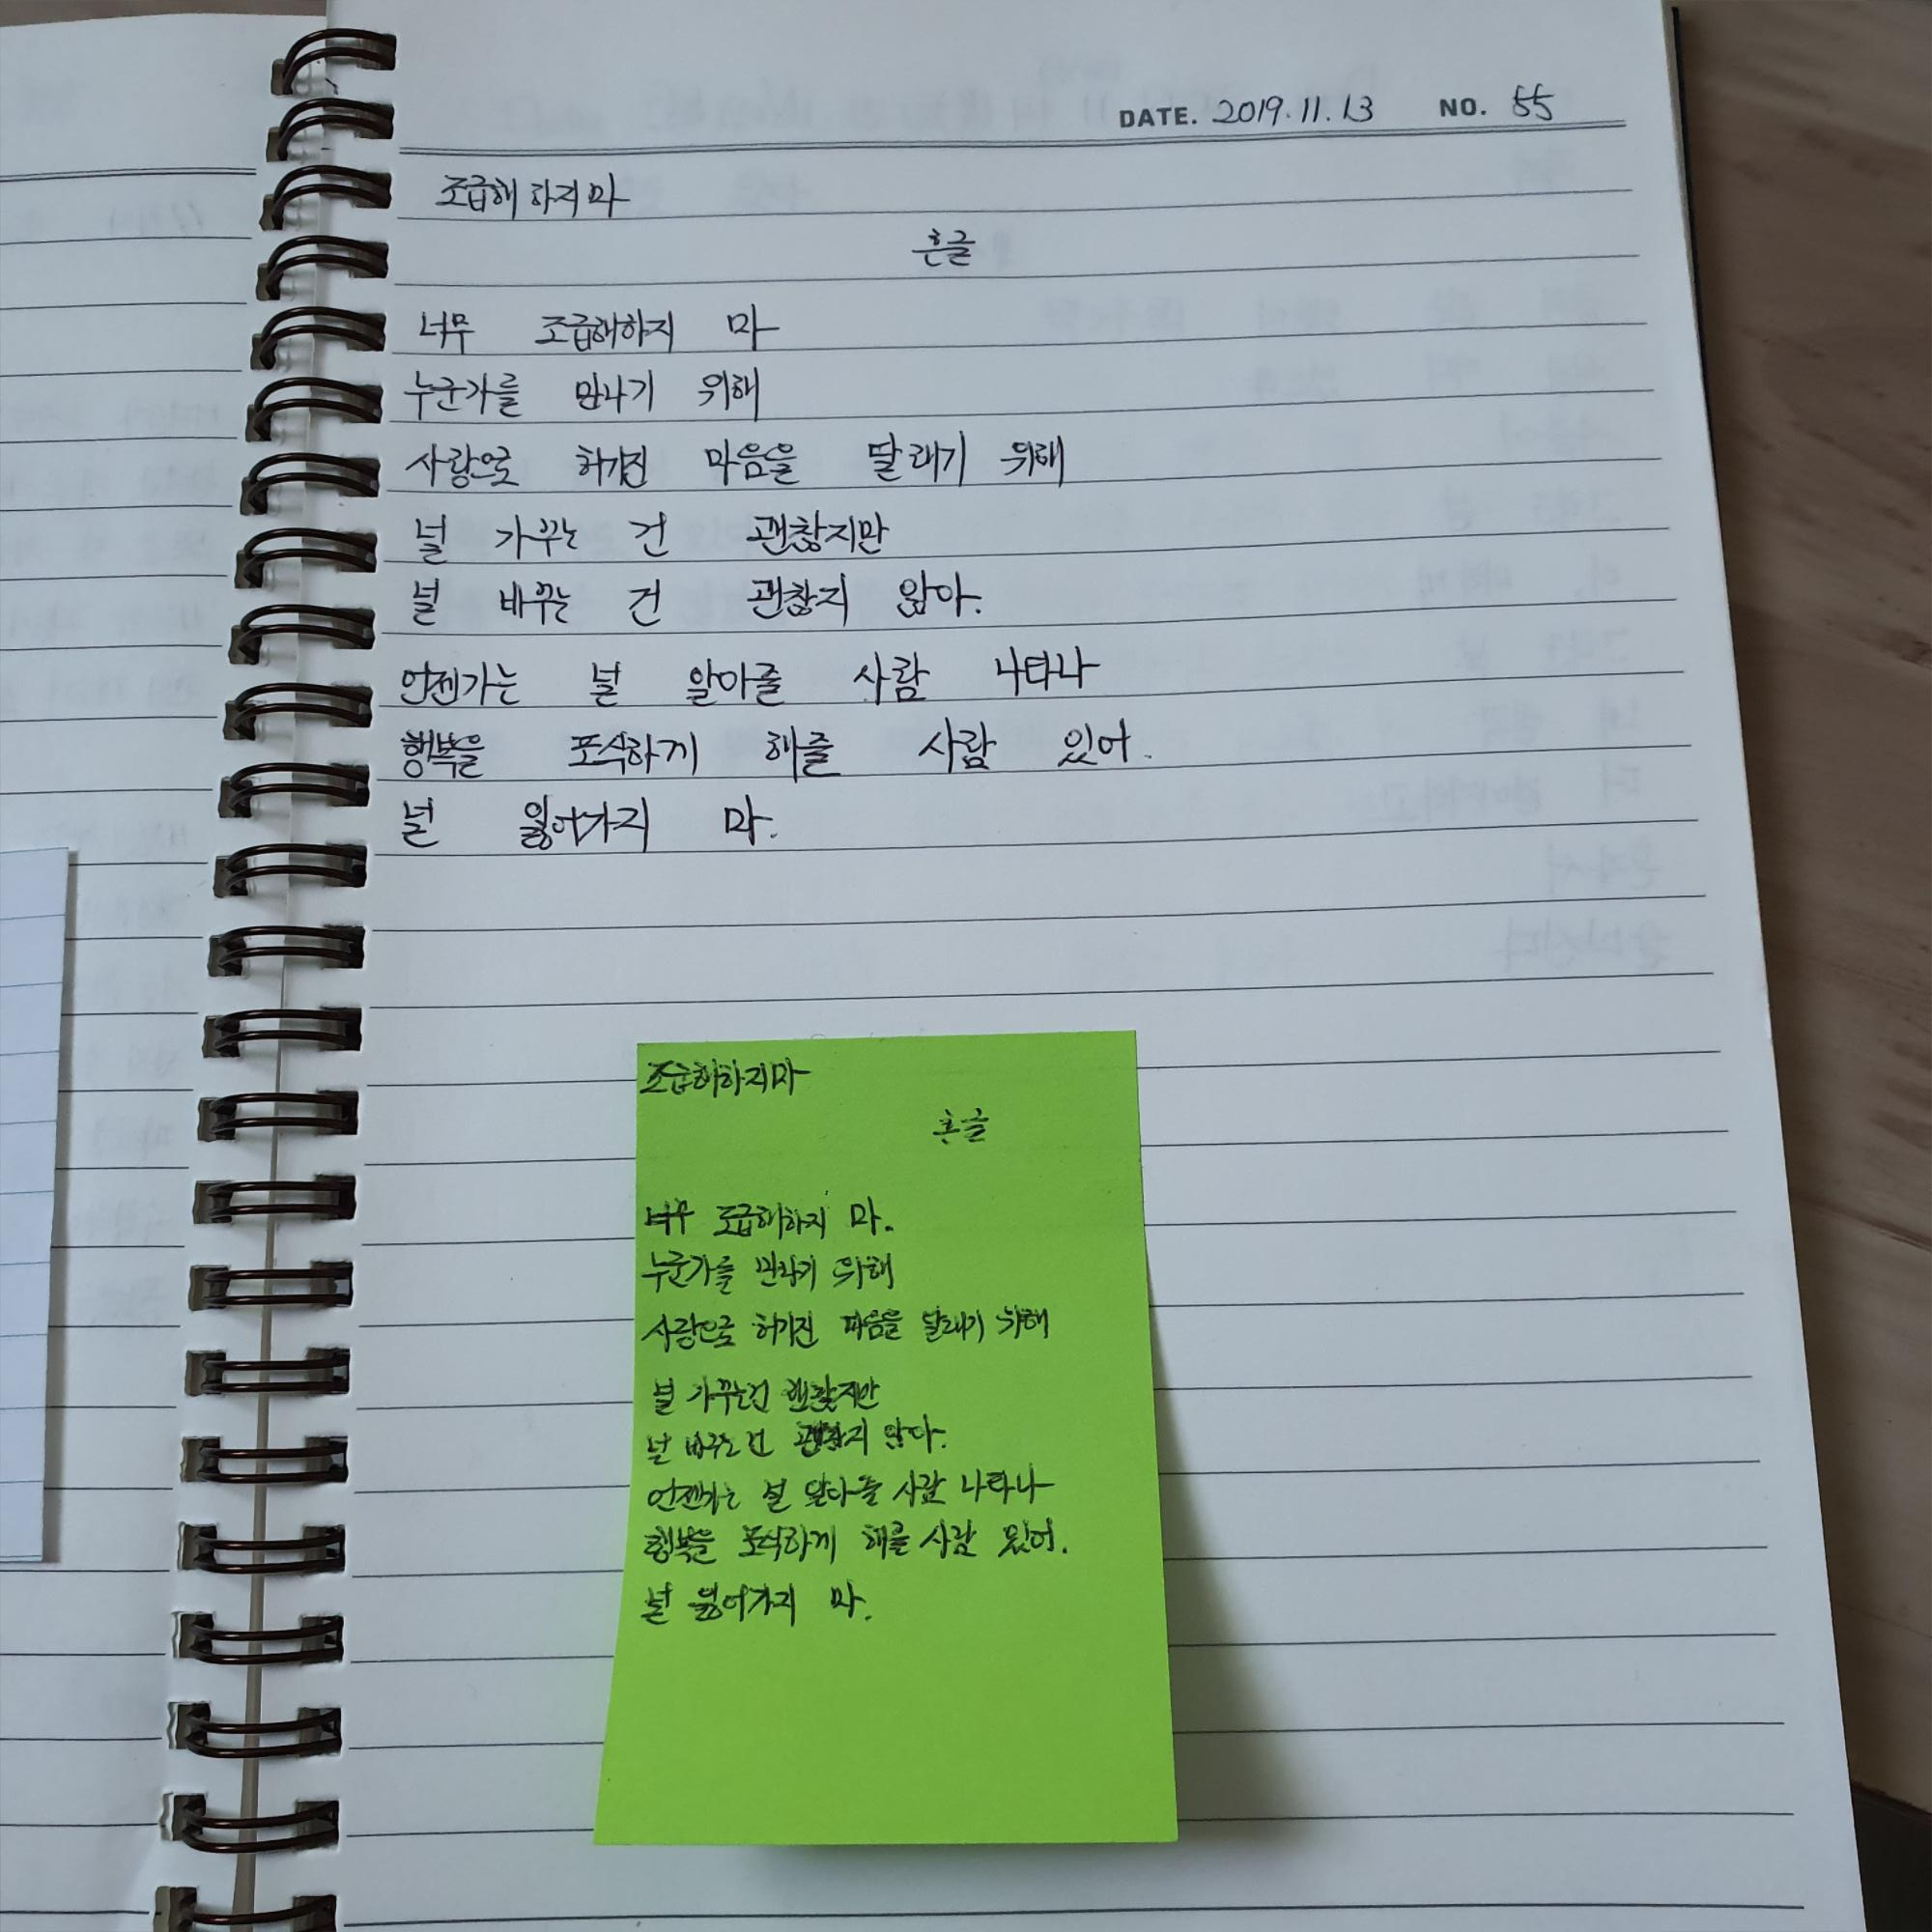 DATE. 2019.11.13 NO. 55
조급해 하지 마
흔글
너무 조급해하지 마
누군가를 만나기 위해
사랑으로 허기진 마음을 달래기 위해
널 가꾸는 건 괜찮지만
널 바꾸는 건 괜찮지 않아.
언젠가는 널 알아줄 사람 나타나
행복을 포식하게 해줄 사람 있어.
널 잃어가지 마.
조급해하지마
흔글
너무 조급해하지 마.
누군가를 만나기 위해
사랑으로 허기진 마음을 달래기 위해
널 가꾸는건 괜찮지만
널 바꾸는건 괜찮지 않아.
언젠가는 널 알아줄 사람 나타나
행복을 포식하게 해줄 사람 있어.
널 잃어가지 마.